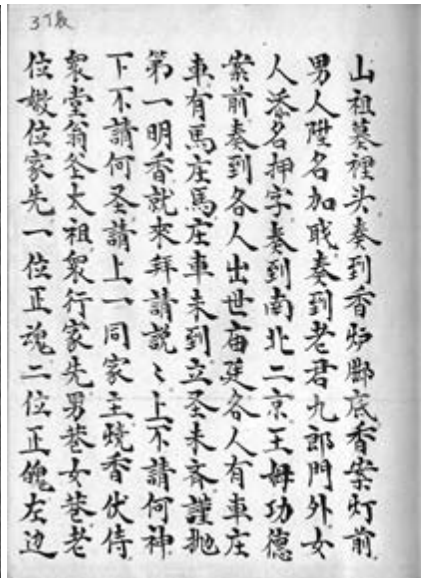 山祖墓裡头奏到香炉腳底香案灯前
男人陞名加职奏到老君九郎門外女
人添名押字奏到南北二京王姆功德
案前奏到各人出世庙廷各人有車庄
車有馬庄馬庄車未到立圣未齐謹抛
第一明香就來拜請説〻上不請何神
下不請何圣請上一同家主燒香伏侍
衆堂翁仝太祖衆行家先男巷女巷老
位嫩位家先一位正魂二位正魄左边